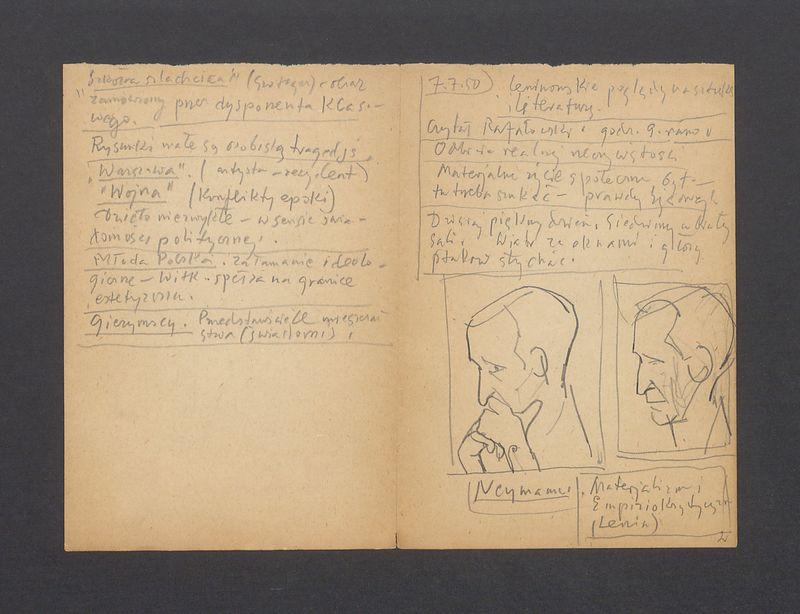 "Szkoła szlachcica" (Grottger) - obraz
zamówiony przez dysponenta klaso-
wego.
Rysunki małe są osobistą tragedją.
"Warszawa". (artysta -
"Wojna" (Konflikty epoki)
Dzieło niezwykłe - w sensie świa-
domości politycznej.
Młoda Polska. załamanie ideolo-
giczne - Witk. spełza na granice
estetyzmu.
Gierymscy. Przedstawiciele mieszczań
stwa (świadomi).
7.7.50) leninowskie poglądy na sztukę
i literaturę.
Czytał Rafałowski. godz. 9. rano
Odbicie realnej rzeczywistości
Materjalne życie społeczne byt -
tu trzeba szukać - prawdy
Dzisiaj piękny dzień. Siedzimy w białej
sali. Wiatr za oknami i głosy
ptaków słychać.
Neymann.
Materjalizm i
Empiriokrytycyzm
(Lenin)
2